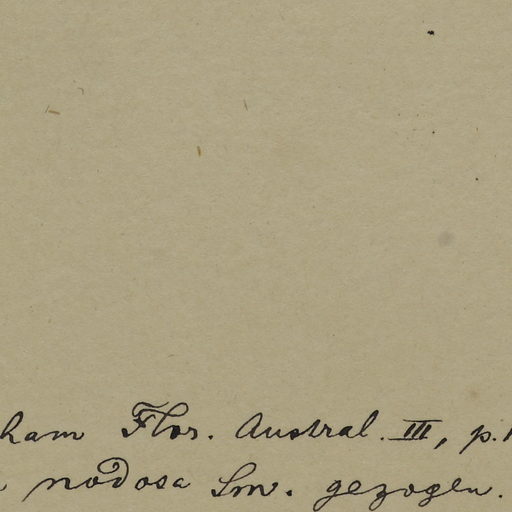 ham Flor. Austral. III, p. 1
nodosa Sm. gezogen.